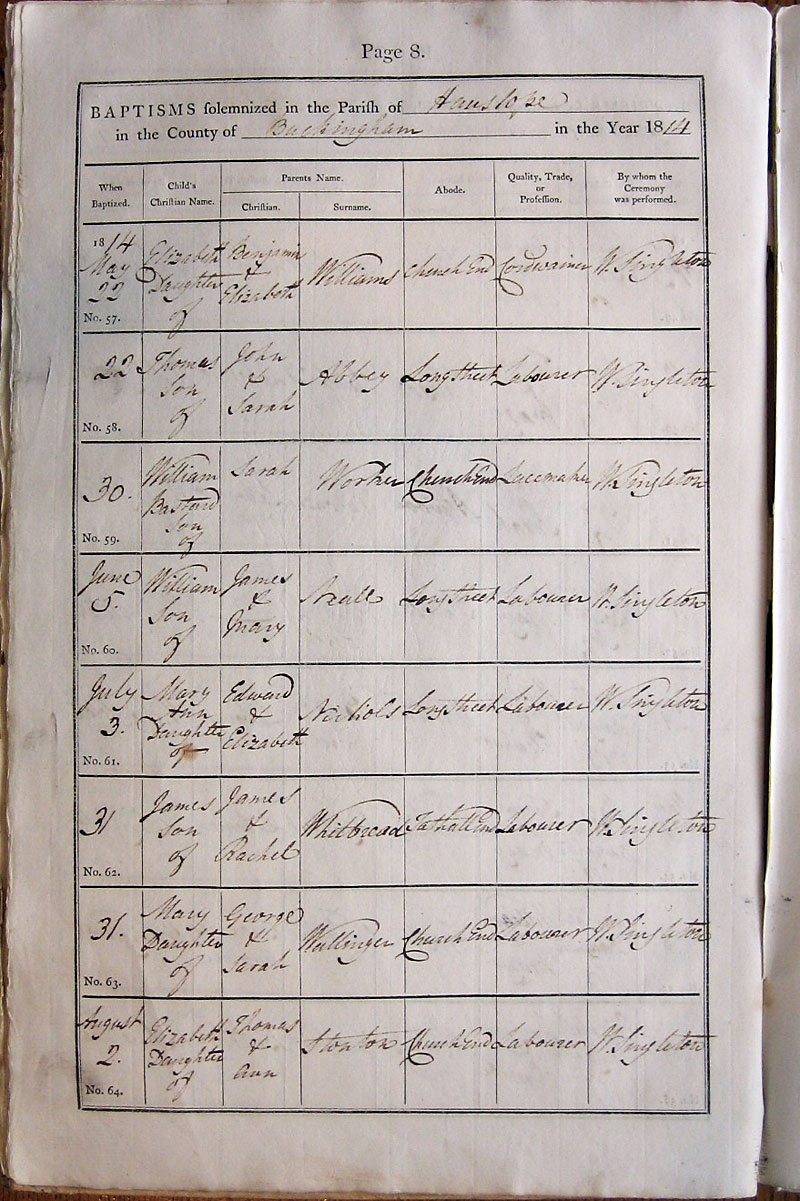 Page 8.
BAPTISMS solemnized in the Parish of Hanslope
in the County of Buckingham in the Year 1814
When Baptized. Child's Christian Name. Parents Name. Christian. Surname. Abode. Quality, Trade, or Profession. By whom the Ceremony was performed.
1814 May 22 No. 57. Elizabeth Daughter of Benjamin & Elizabeth Williams Church End Cordwainer W. Singleton
22 No. 58. Thomas Son of John & Sarah Abbey Longstreet Labourer W. Singleton
30. No. 59. William Bastard Son of Sarah Worker Church End Lacemaker W. Singleton
June 5. No. 60. William Son of James & Mary Neale Longstreet Labourer W. Singleton
July 3. No. 61. Mary Ann Daughter of Edward & Elizabeth Nichols Longstreet Labourer W. Singleton
31 No. 62. James Son of James & Rachel Whitbread Tathall End Labourer W. Singleton
31. No. 63. Mary Daughter of George & Sarah Wallinger Church End Labourer W. Singleton
August 2. No. 64. Elizabeth Daughter of Thomas & Ann Stonton Church End Labourer W. Singleton